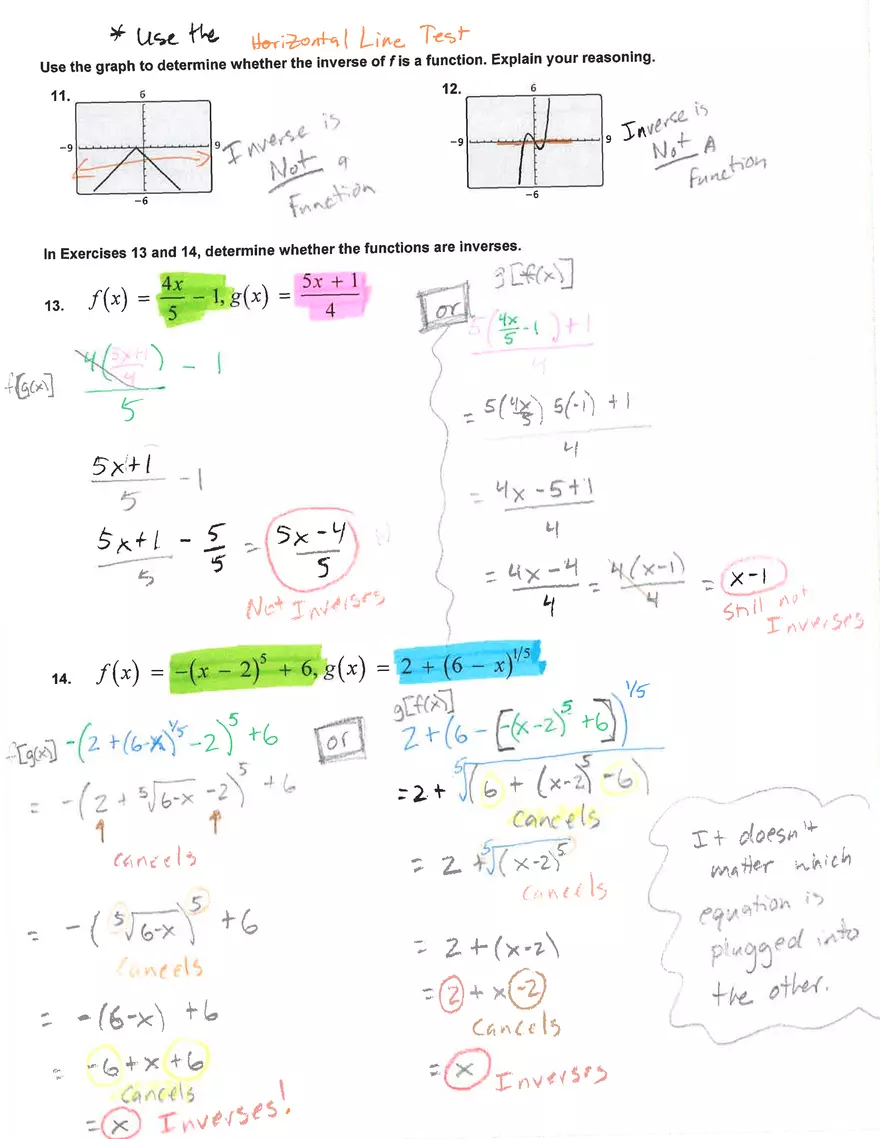 * Use the Horizontal Line Test
Use the graph to determine whether the inverse of f is a function. Explain your reasoning.
11.
6
-9
9
-6
Inverse is
Not a
Function
12.
6
-9
9
-6
Inverse is
Not A
Function
In Exercises 13 and 14, determine whether the functions are inverses.
13. f(x) = 4x/5 − 1, g(x) = (5x + 1)/4
f[g(x)]
4((5x+1)/4)/5 - 1
(5x+1)/5 - 1
(5x+1)/5 - 5/5 = (5x-4)/5
Not Inverses
or
g[f(x)]
(5(4x/5 - 1) + 1)/4
= (5(4x/5) 5(-1) + 1)/4
= (4x - 5 + 1)/4
= (4x - 4)/4 = 4(x-1)/4 = x - 1
Still not
Inverses
14. f(x) = −(x − 2)^5 + 6, g(x) = 2 + (6 − x)^1/5
f[g(x)] -(2 + (6-x)^1/5 - 2)^5 + 6
= -(2 + ⁵√(6-x) - 2)^5 + 6
cancels
= -(⁵√(6-x))^5 + 6
cancels
= -(6-x) + 6
= -6 + x + 6
cancels
= x Inverses!
or
g[f(x)]
2 + (6 - [-(x-2)^5 + 6])^1/5
= 2 + ⁵√(6 + (x-2)^5 - 6)
cancels
= 2 + ⁵√(x-2)^5
cancels
= 2 + (x-2)
= 2 + x - 2
cancels
= x Inverses
It doesn't
matter which
equation is
plugged into
the other.